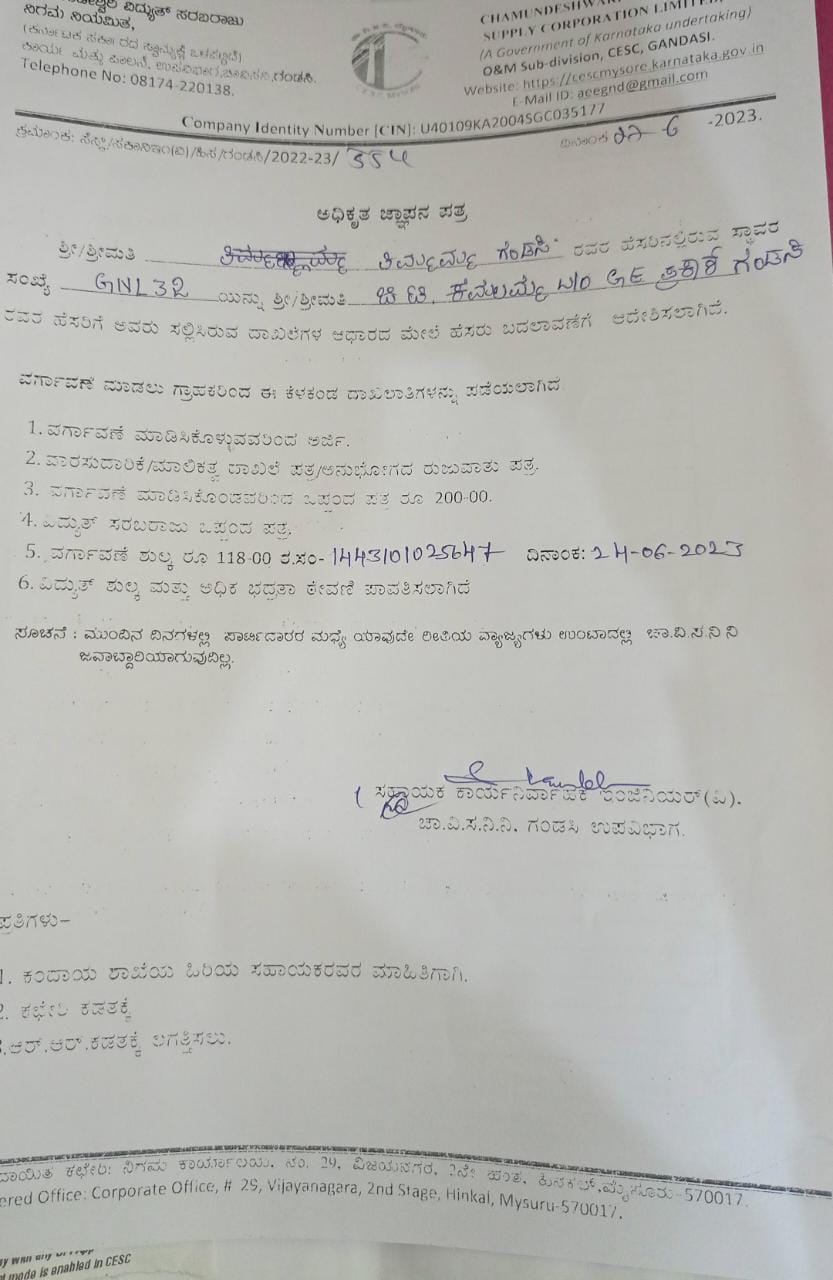 ವಿದ್ಯುತ್ ಸರಬರಾಜು
ನಿಗಮ ನಿಯಮಿತ,
(ಕರ್ನಾಟಕ ಸರ್ಕಾರದ ಸ್ವಾಮ್ಯಕ್ಕೆ ಒಳಪಟ್ಟಿದೆ)
ಕಾರ್ಯ ಮತ್ತು ಪಾಲನೆ, ಉಪವಿಭಾಗ,ಚಾವಿಸನಿ,ಗಂಡಸಿ.
Telephone No: 08174-220138.
SUPPLY CORPORATION LIMITED,
(A Government of Karnataka undertaking)
O&M Sub-division, CESC, GANDASI.
Website: https://cescmysore.karnataka.gov.in
E-Mail ID: aeegnd@gmail.com
Company Identity Number [CIN]: U40109KA2004SGC035177
/2022-23/ 354 ದಿನಾಂಕ 27-6 -2023.
ಅಧಿಕೃತ ಜ್ಞಾಪನ ಪತ್ರ
ಶ್ರೀ/ಶ್ರೀಮತಿ ಗಂಡಸಿ ರವರ ಹೆಸರಿನಲ್ಲಿರುವ ಸ್ಥಾವರ
ಸಂಖ್ಯೆ GNL32 ಯನ್ನು ಶ್ರೀ/ಶ್ರೀಮತಿ ಕಮಲಮ್ಮ W/O GE ಪ್ರಕಾಶ್ ಗಂಡಸಿ
ರವರ ಹೆಸರಿಗೆ ಅವರು ಸಲ್ಲಿಸಿರುವ ದಾಖಲೆಗಳ ಆಧಾರದ ಮೇಲೆ ಹೆಸರು ಬದಲಾವಣೆಗೆ ಆದೇಶಿಸಲಾಗಿದೆ.
ವರ್ಗಾವಣೆ ಮಾಡಲು ಗ್ರಾಹಕರಿಂದ ಈ ಕೆಳಕಂಡ ದಾಖಲಾತಿಗಳನ್ನು ಪಡೆಯಲಾಗಿದೆ
1. ವರ್ಗಾವಣೆ ಮಾಡಿಸಿಕೊಳ್ಳುವವರಿಂದ ಅರ್ಜಿ.
2. ವಾರಸುದಾರಿಕೆ/ಮಾಲಿಕತ್ವ ದಾಖಲೆ ಪತ್ರ/ಅನುಭೋಗದ ರುಜುವಾತು ಪತ್ರ.
3. ವರ್ಗಾವಣೆ ಮಾಡಿಸಿಕೊಂಡವರಿಂದ ಒಪ್ಪಂದ ಪತ್ರ ರೂ 200-00.
4. ವಿದ್ಯುತ್ ಸರಬರಾಜು ಒಪ್ಪಂದ ಪತ್ರ.
5. ವರ್ಗಾವಣೆ ಶುಲ್ಕ ರೂ 118-00 ರ.ಸಂ- 1443101025647 ದಿನಾಂಕ: 24-06-2023
6. ವಿದ್ಯುತ್ ಶುಲ್ಕ ಮತ್ತು ಅಧಿಕ ಭದ್ರತಾ ಠೇವಣಿ ಪಾವತಿಸಲಾಗಿದೆ
ಸೂಚನೆ : ಮುಂದಿನ ದಿನಗಳಲ್ಲಿ ಪಾರ್ಟಿದಾರರ ಮಧ್ಯೆ ಯಾವುದೇ ರೀತಿಯ ವ್ಯಾಜ್ಯಗಳು ಉಂಟಾದಲ್ಲಿ ಚಾ.ವಿ.ಸ.ನಿ.ನಿ
ಜವಾಬ್ದಾರಿಯಾಗುವುದಿಲ್ಲ.
ಸಹಾಯಕ ಕಾರ್ಯನಿರ್ವಾಹಕ ಇಂಜಿನಿಯರ್(ವಿ).
ಚಾ.ವಿ.ಸ.ನಿ.ನಿ. ಗಂಡಸಿ ಉಪವಿಭಾಗ.
ಪ್ರತಿಗಳು-
1. ಕಂದಾಯ ಶಾಖೆಯ ಹಿರಿಯ ಸಹಾಯಕರವರ ಮಾಹಿತಿಗಾಗಿ.
2. ಕಛೇರಿ ಕಡತಕ್ಕೆ
3.ಆರ್.ಆರ್.ಕಡತಕ್ಕೆ ಲಗತ್ತಿಸಲು.
ಕಛೇರಿ: ನಿಗಮ ಕಾರ್ಯಾಲಯ, ನಂ. 29, ವಿಜಯನಗರ, 2ನೇ ಹಂತ, ಹಿನಕಲ್,ಮೈಸೂರು-570017.
ered Office: Corporate Office, # 29, Vijayanagara, 2nd Stage, Hinkal, Mysuru-570017.
mode is enabled in CESC